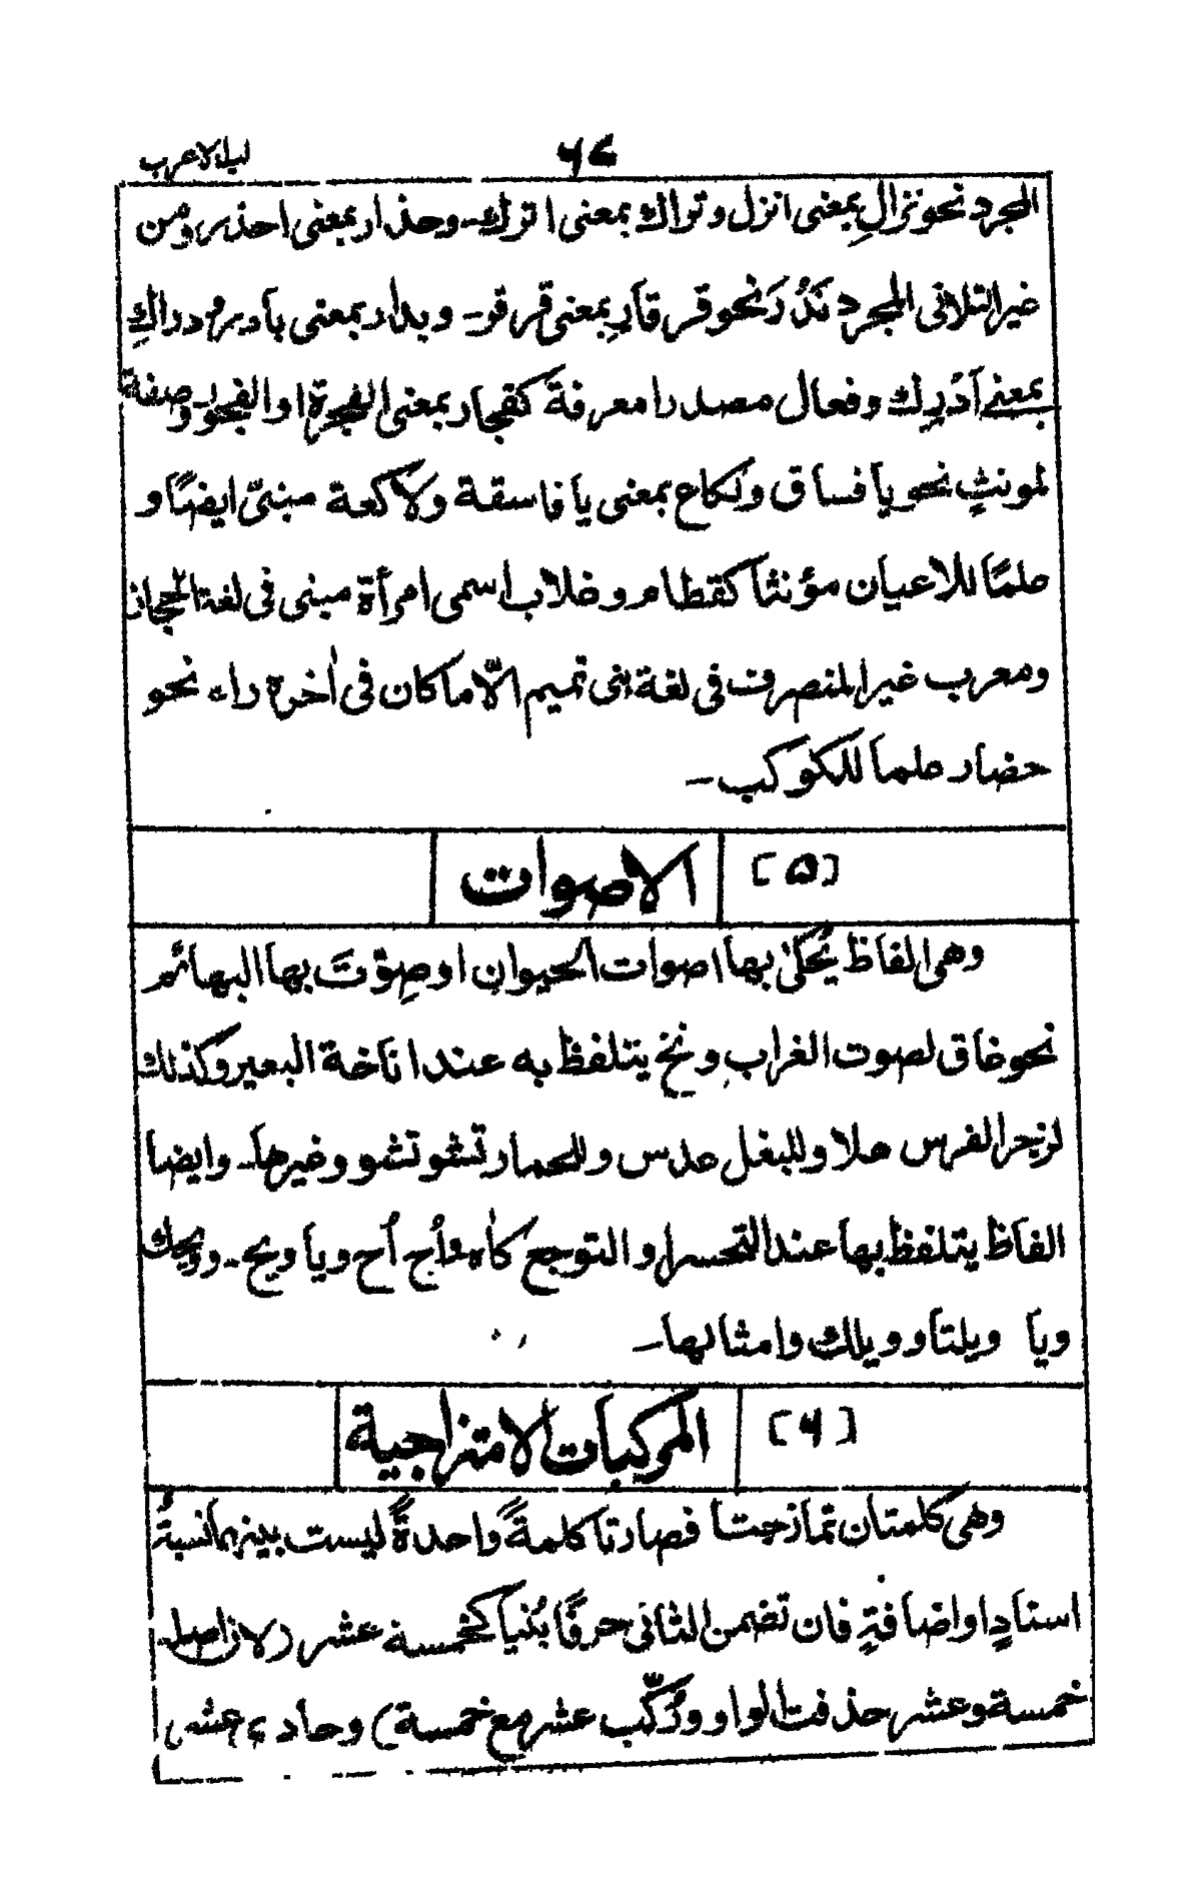 ۶۷
المجرد نحو نزالِ بمعنى انزل وتراك بمعنى اترك۔ وحذار بمعنى احذر، ومن
غير الثلاثى المجرد نَدُرَ نحو قرقارِ بمعنى قرقر۔ وبدار بمعنى بادر ودراكِ
بمعنى اَدْرِك وفعال مصدرا معرفة كفجار بمعنى الفجرة او الفجور وصفة
لمونثٍ نحو يا فساق ولكاع بمعنى يا فاسقة ولاكعة مبنىّ ايضًا و
علمًا للاعيان مؤنثا كقطام وغلاب اسمى امرأة مبنى فى لغة الحجاز
ومعرب غير المنصرف فى لغة بنى تميم الّا ما كان فى اٰخره راء نحو
حضار علما للكوكب۔
[۵] الاصوات
وهى الفاظ يُحكىٰ بها اصوات الحيوان او صِوّتَ بها البهائم
نحو غاق لصوت الغراب ونخ يتلفظ به عند اناخة البعير وكذلك
لزجر الفرس هلا وللبغل عدس وللحمار تشو تشو وغيرها۔ وايضا
الفاظ يتلفظ بها عند التحسر او التوجع كاٰه وأُح أُح ويا ويح۔ وويحك
ويا ويلتا وويلك وامثالها۔
[۶] المركبات الامتزاجية
وهى كلمتان تمازجتا فصارتا كلمةً واحدةً ليست بينهما نسبةُ
اسنادٍ او اضافةٍ فان تضمن الثانى حرفًا بُنيا كخمسة عشر (لان اصله
خمسة وعشر حذفت الواو ورُكّب عشر مع خمسة) وحادى عشر